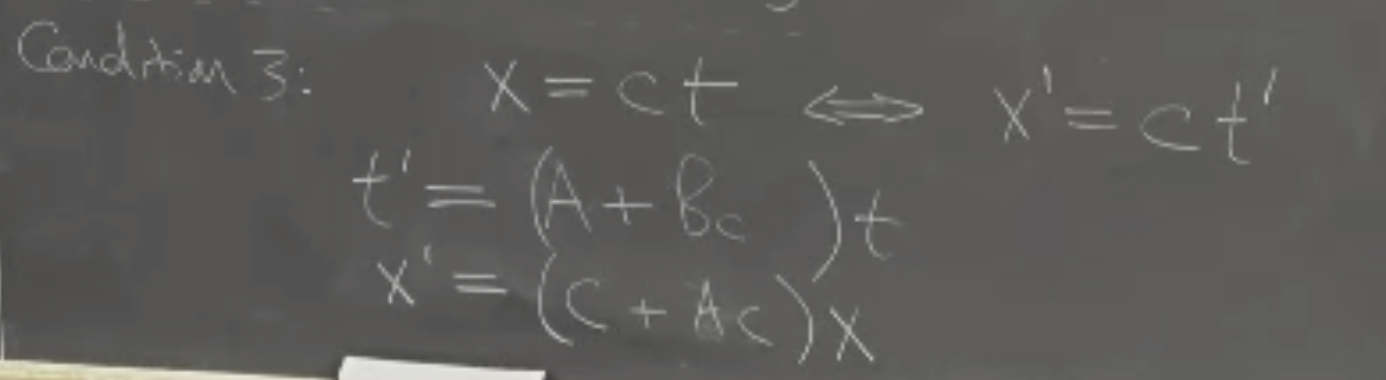 Condition 3: x = ct ⟺ x' = ct'
t' = (A + Bc )t
x' = (C + Ac)x